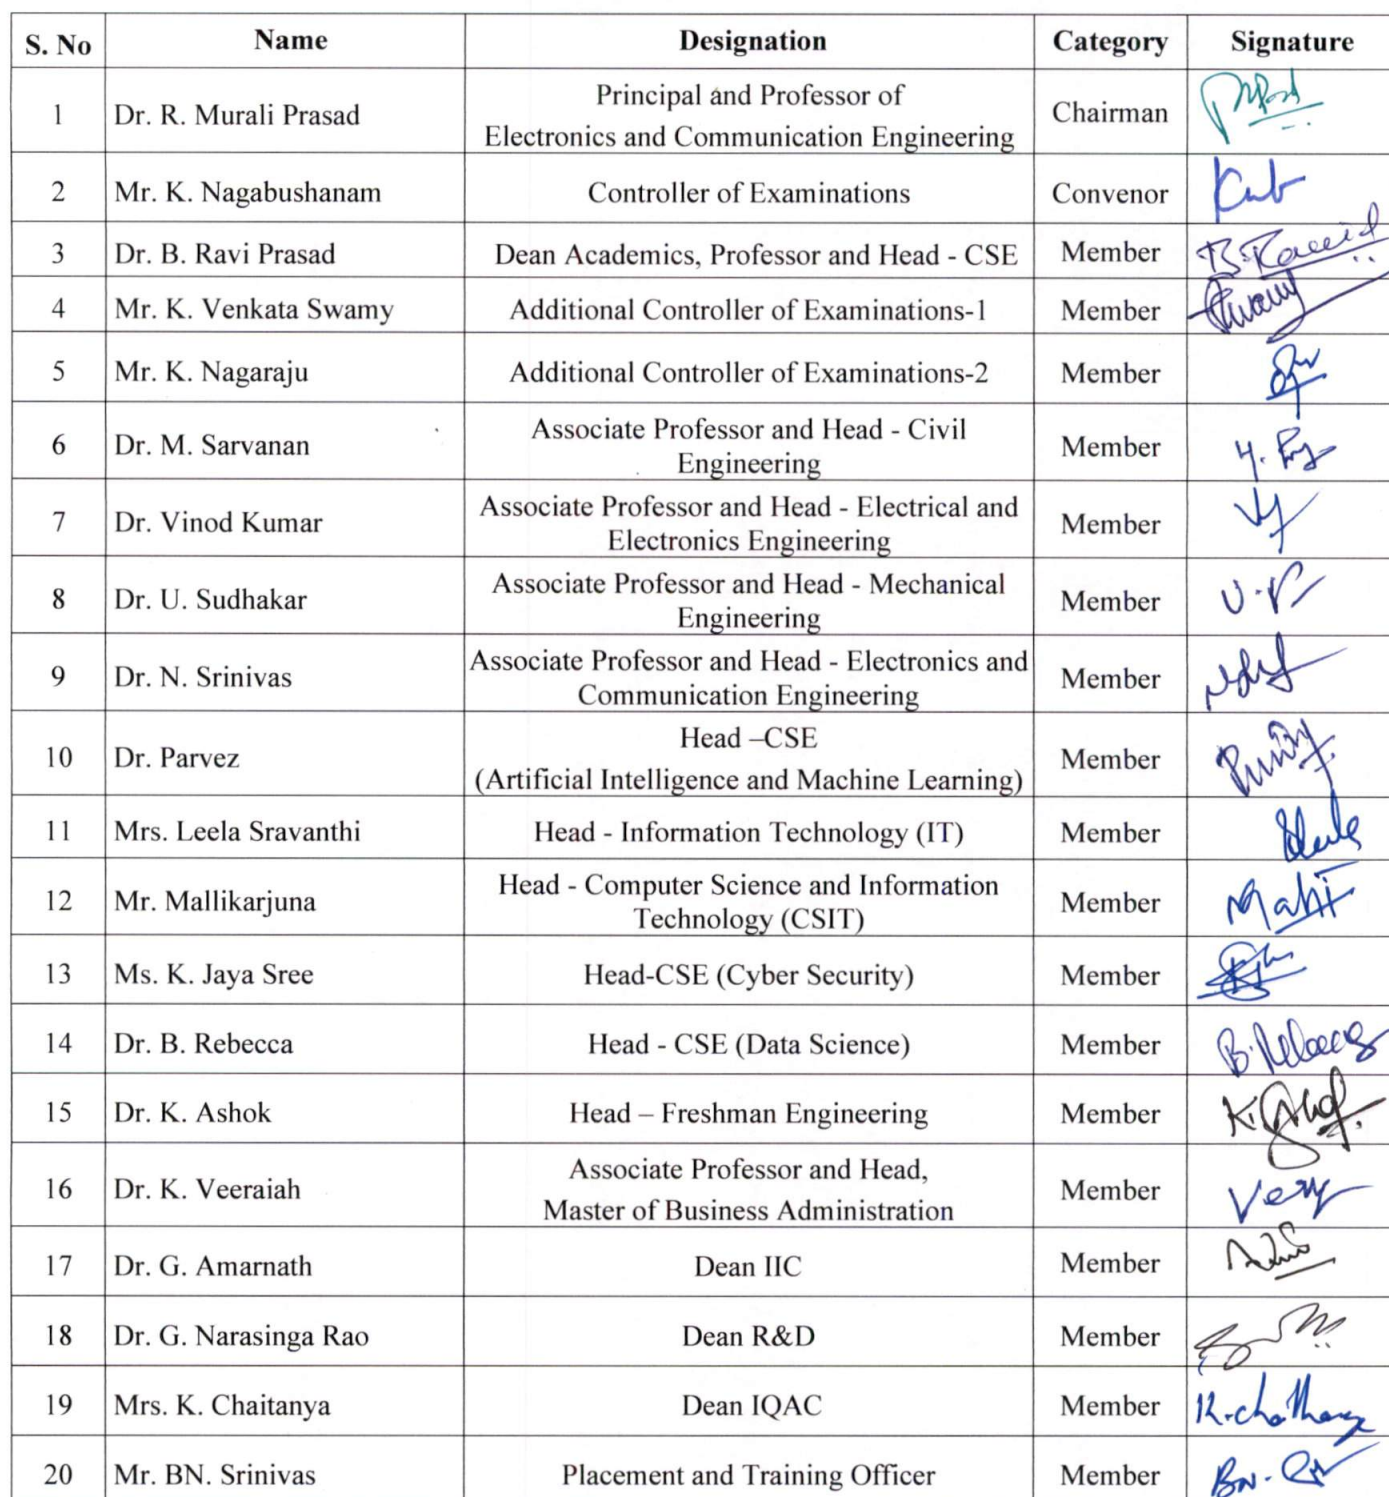 S. No Name Designation Category Signature
1 Dr. R. Murali Prasad Principal and Professor of
Electronics and Communication Engineering Chairman
2 Mr. K. Nagabushanam Controller of Examinations Convenor
3 Dr. B. Ravi Prasad Dean Academics, Professor and Head - CSE Member
4 Mr. K. Venkata Swamy Additional Controller of Examinations-1 Member Swamy
5 Mr. K. Nagaraju Additional Controller of Examinations-2 Member
6 Dr. M. Sarvanan Associate Professor and Head - Civil
Engineering Member
7 Dr. Vinod Kumar Associate Professor and Head - Electrical and
Electronics Engineering Member
8 Dr. U. Sudhakar Associate Professor and Head - Mechanical
Engineering Member
9 Dr. N. Srinivas Associate Professor and Head - Electronics and
Communication Engineering Member
10 Dr. Parvez Head –CSE
(Artificial Intelligence and Machine Learning) Member
11 Mrs. Leela Sravanthi Head - Information Technology (IT) Member
12 Mr. Mallikarjuna Head - Computer Science and Information
Technology (CSIT) Member
13 Ms. K. Jaya Sree Head-CSE (Cyber Security) Member
14 Dr. B. Rebecca Head - CSE (Data Science) Member B. Rebecca
15 Dr. K. Ashok Head – Freshman Engineering Member K. Ashok
16 Dr. K. Veeraiah Associate Professor and Head,
Master of Business Administration Member
17 Dr. G. Amarnath Dean IIC Member
18 Dr. G. Narasinga Rao Dean R&D Member
19 Mrs. K. Chaitanya Dean IQAC Member
20 Mr. BN. Srinivas Placement and Training Officer Member